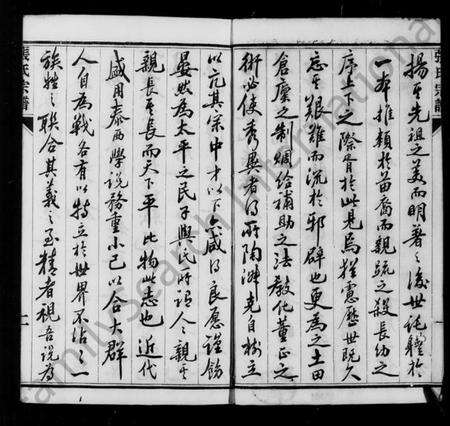 揚其先祖之美而明著之後世託體於
一本推類於苗裔而親疏之殺長幼之
序上下之際胥於此見焉猶慮歷世既久
忘其艱難而流於邪辟也更為之土田
倉廩之制賙給補助之法教化董正之
術必使秀異者得所陶淑克自樹立
以亢其宗中才以下亦咸得良愿謹飭
晏然為太平之民子輿氏所謂人人親其
親長其長而天下平此物此志也近代
盛用泰西學說務重小己以合大群
人自為戰各有以特立於世界不沾沾一
族姓之聯合其義之至精者視吾說為
張氏宗譜
張氏宗譜
FamilySearch International